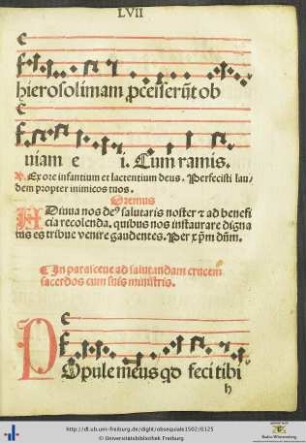 LVII
hierosolimam p̲cesserūt ob
uiam e i. Cum ramis.
℣. Ex ore infantium et lactentium deus. Perfecisti lau⸗
dem propter inimicos tuos.
Oremus
ADiuua nos de⁹ salutaris noster ⁊ ad benefi
cia recolenda. quibus nos instaurare digna
tus es tribue venire gaudentes. Per xp̄m dn̄m.
In parasceue ad salutandam crucem
sacerdos cum suis ministris.
POpule meus qd feci tibi
h
http://dl.ub.uni-freiburg.de/diglit/obsequiale1502/0125
© Universitätsbibliothek Freiburg